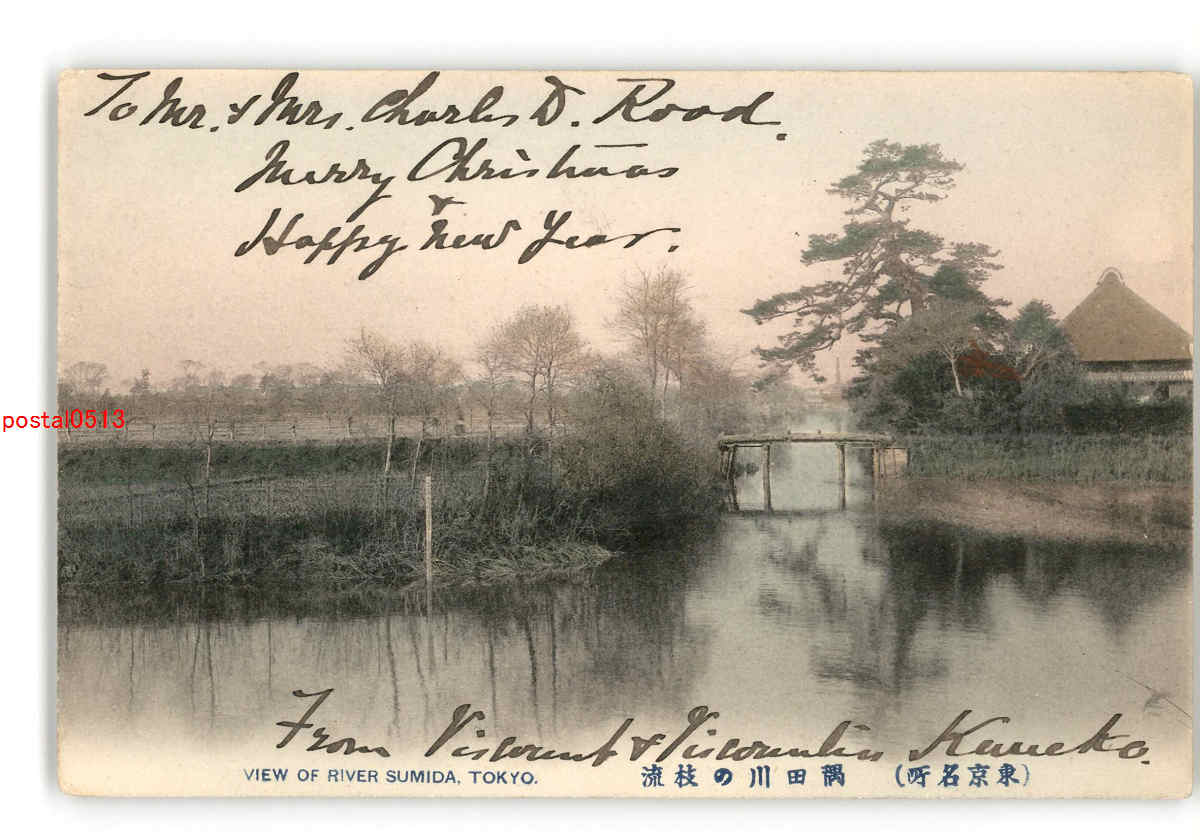 To Mr. & Mrs. Charles D. Rood.
Merry Christmas
&
Happy New Year.
postal0513
From Viscount & Viscountess Kaneko.
VIEW OF RIVER SUMIDA, TOKYO.
(東京名所) 隅田川の枝流